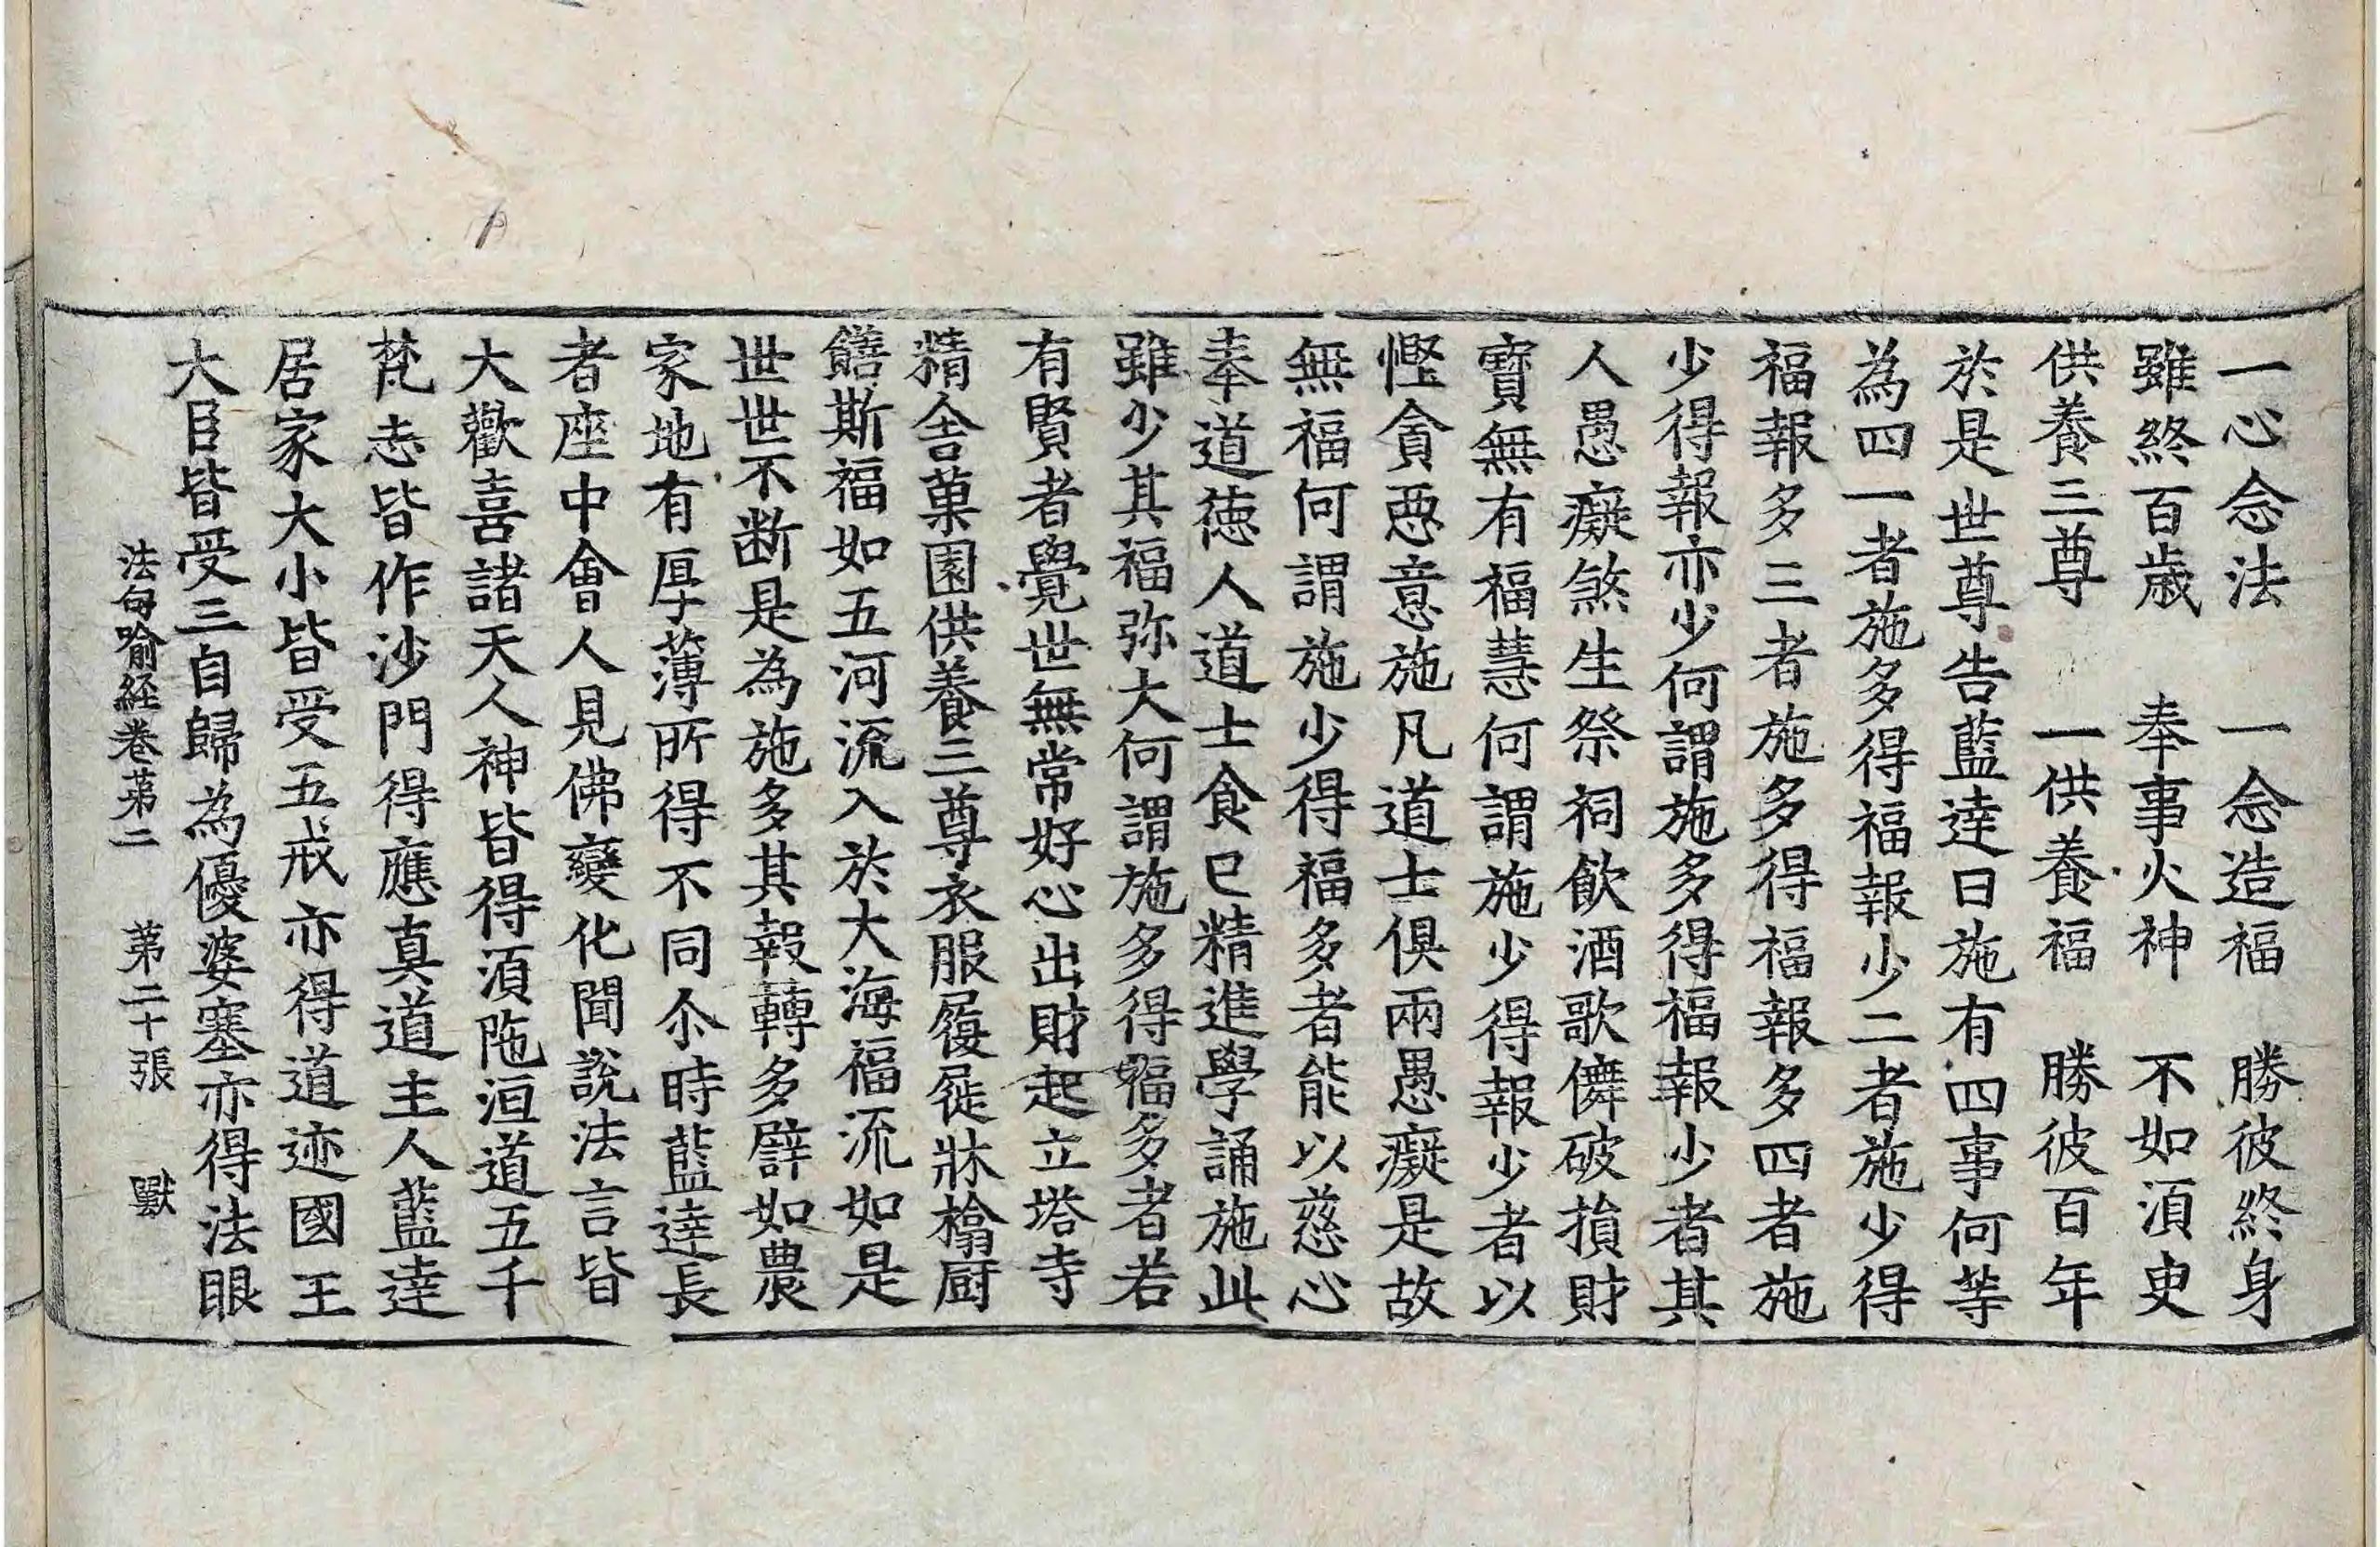 一心念法　一念造福　勝彼終身
雖終百歲　奉事火神　不如湏臾
供養三尊　一供養福　勝彼百年
於是世尊告藍達曰施有四事何等
為四一者施多得福報少二者施少得
福報多三者施多得福報多四者施
少得報亦少何謂施多得福報少者其
人愚癡煞生祭祠飲酒歌儛破損財
寶無有福慧何謂施少得報少者以
慳貪惡意施凡道士俱兩愚癡是故
無福何謂施少得福多者能以慈心
奉道德人道士食已精進學誦施此
雖少其福弥大何謂施多得福多者若
有賢者覺世無常好心出財起立塔寺
精舍菓園供養三尊衣服履屣牀榻厨
饍斯福如五河流入於大海福流如是
世世不断是為施多其報轉多譬如農
家地有厚薄所得不同尒時藍達長
者座中會人見佛變化聞說法言皆
大歡喜諸天人神皆得湏陁洹道五千
梵志皆作沙門得應真道主人藍達
居家大小皆受五戒亦得道迹國王
大臣皆受三自歸為優婆塞亦得法眼
法句喻經卷第二　第二十張　獸